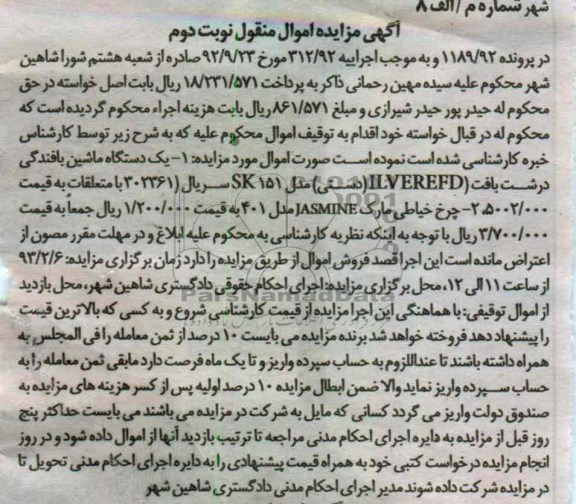 شهر شماره م / الف ۸
آگهی مزایده اموال منقول نوبت دوم
در پرونده ۱۱۸۹/۹۲ و به موجب اجراییه ۳۱۲/۹۲ مورخ ۹۲/۹/۲۳ صادره از شعبه هشتم شورا شاهین
شهر محکوم علیه سیده مهین رحمانی ذاکر به پرداخت ۱۸/۲۳۱/۵۷۱ ریال بابت اصل خواسته در حق
محکوم له حیدر پور حیدر شیرازی و مبلغ ۸۶۱/۵۷۱ ریال بابت هزینه اجراء محکوم گردیده است که
محکوم له در قبال خواسته خود اقدام به توقیف اموال محکوم علیه که به شرح زیر توسط کارشناس
خبره کارشناسی شده است نموده است صورت اموال مورد مزایده: ۱- یک دستگاه ماشین بافندگی
درشت بافت (ILVEREFD(دستی) مدل SK ۱۵۱ سریال (۳۰۲۳۶۱ با متعلقات به قیمت
۲،۵۰۰۲/۰۰۰-چرخ خیاطی مارک JASMINE مدل ۴۰۱ به قیمت ۱/۲۰۰/۰۰۰ ریال جمعا به قیمت
۳/۷۰۰/۰۰۰ ریال با توجه به اینکه نظریه کارشناسی به محکوم علیه ابلاغ و در مهلت مقرر مصون از
اعتراض مانده است این اجرا قصد فروش اموال از طریق مزایده را دارد زمان برگزاری مزایده: ۹۳/۲/۶
از ساعت ۱۱ الی ۱۲، محل برگزاری مزایده: اجرای احکام حقوقی دادگستری شاهین شهر، محل بازدید
از اموال توقیفی: با هماهنگی این اجرا مزایده از قیمت کارشناسی شروع و به کسی که بالاترین قیمت
را پیشنهاد دهد فروخته خواهد شد برنده مزایده می بایست ۱۰ درصد از ثمن معامله را فی المجلس به
همراه داشته باشند تا عنداللزوم به حساب سپرده واریز و تا یک ماه فرصت دارد مابقی ثمن معامله را به
حساب سپرده واریز نماید والا ضمن ابطال مزایده ۱۰ درصد اولیه پس از کسر هزینه های مزایده به
صندوق دولت واریز می گردد کسانی که مایل به شرکت در مزایده می باشند می بایست حداکثر پنج
روز قبل از مزایده به دایره اجرای احکام مدنی مراجعه تا ترتیب بازدید آنها از اموال داده شود و در روز
انجام مزایده درخواست کتبی خود به همراه قیمت پیشنهادی را به دایره اجرای احکام مدنی تحویل تا
در مزایده شرکت داده شوند مدیر اجرای احکام مدنی دادگستری شاهین شهر
ParsNamadData